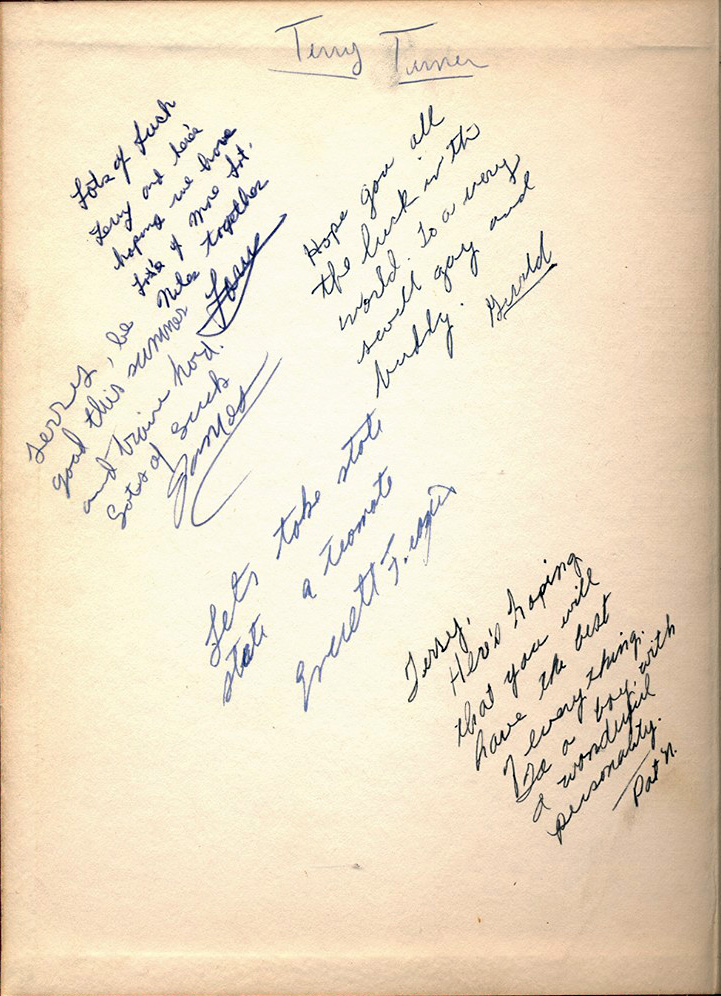 Terry Turner
Lots of Luck
Terry and here's
hoping we have
lots of more Sat.
Nites together
Terrey, be
good this summer
and train hard.
Lots of luck
James
Hope you all
the luck in the
world. To a very
swell guy and
buddy.
Gerald
Lets take state
state a teamate
Everett
Terry,
Here's hoping
that you will
have the best
of everything.
To a boy with
a wonderful
personality.
Pat N.